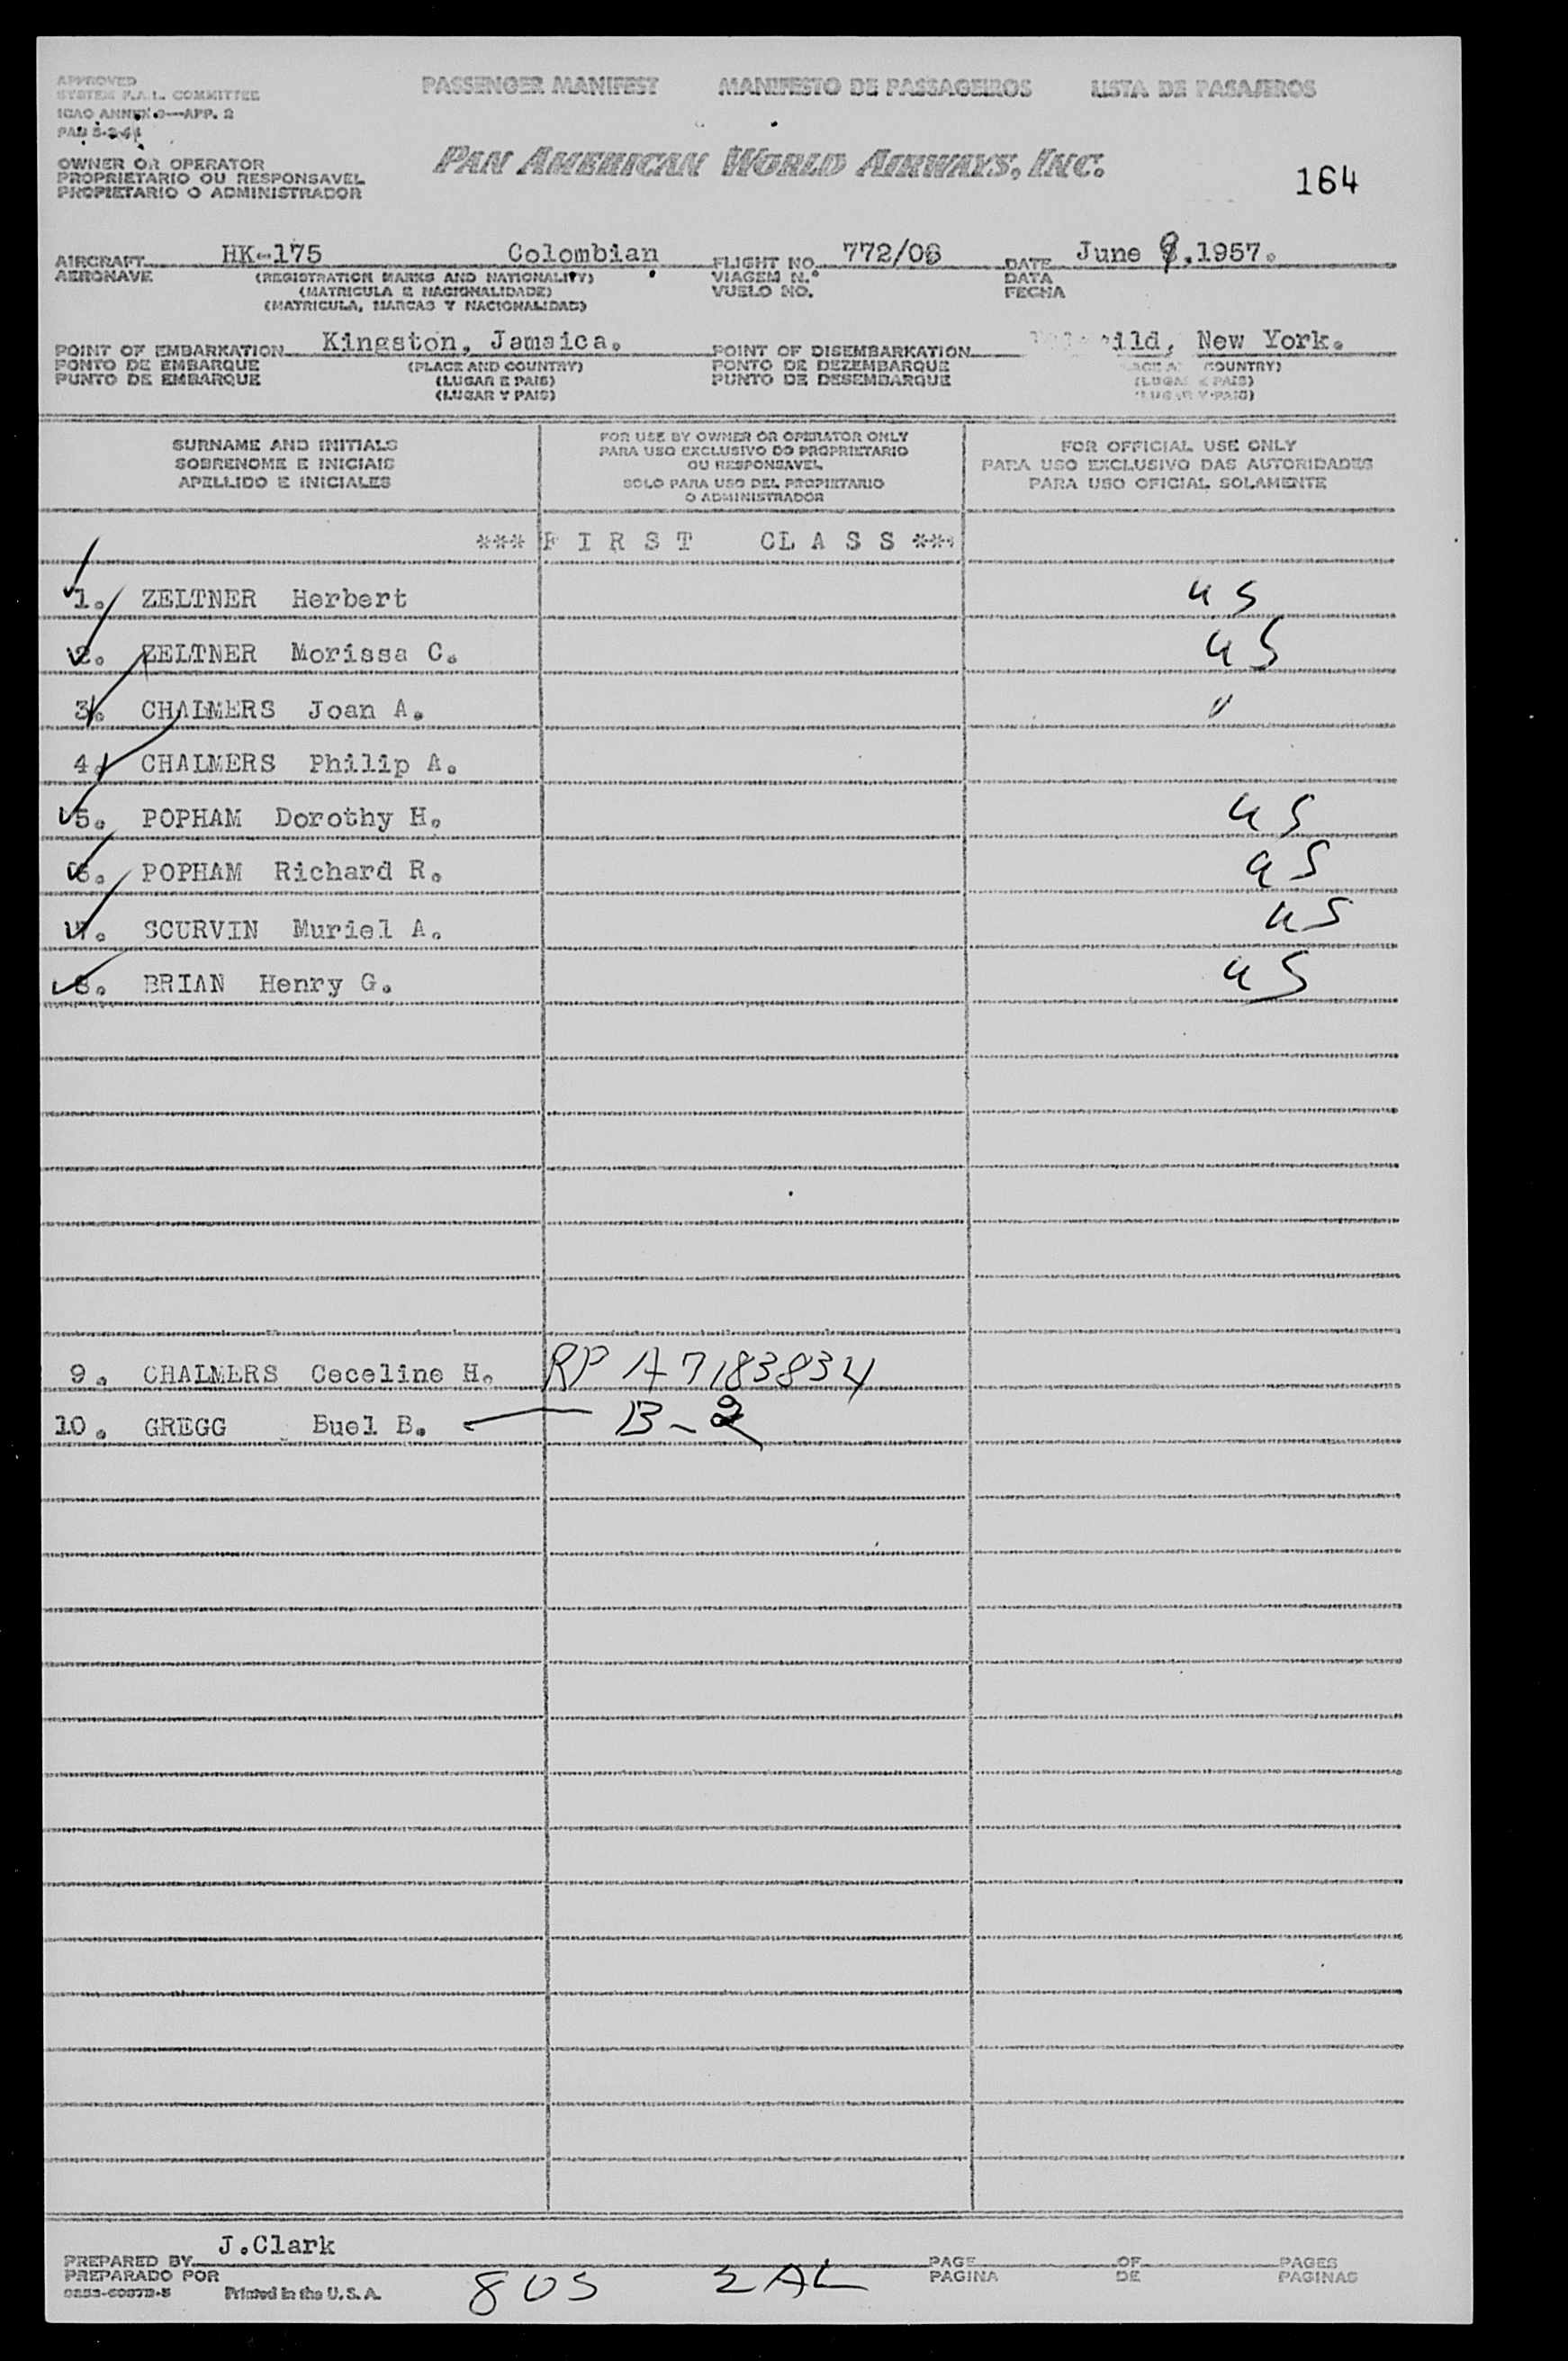 APPROVED
SYSTEM F.A.L. COMMITTEE
ICAO ANNEX 9—APP. 2
PASSENGER MANIFEST MANIFESTO DE PASSAGEIROS LISTA DE PASAJEROS
OWNER OR OPERATOR
PROPRIETARIO OU RESPONSAVEL
PROPIETARIO O ADMINISTRADOR
PAN AMERICAN WORLD AIRWAYS, INC.
164
AIRCRAFT HK-175 Colombian FLIGHT NO. 772/06 DATE June 9, 1957.
AERONAVE (REGISTRATION MARKS AND NATIONALITY) VIAGEM N.° DATA
(MATRICULA E NACIONALIDADE) VUELO NO. FECHA
(MATRICULA, MARCAS Y NACIONALIDAD)
POINT OF EMBARKATION Kingston, Jamaica. POINT OF DISEMBARKATION New York.
PONTO DE EMBARQUE (PLACE AND COUNTRY) PONTO DE DEZEMBARQUE COUNTRY)
PUNTO DE EMBARQUE (LUGAR E PAIS) PUNTO DE DESEMBARQUE (LUGAR E PAIS)
(LUGAR Y PAIS) (LUGAR Y PAIS)
SURNAME AND INITIALS
SOBRENOME E INICIAIS
APELLIDO E INICIALES
FOR USE BY OWNER OR OPERATOR ONLY
PARA USO EXCLUSIVO DO PROPRIETARIO
OU RESPONSAVEL
SOLO PARA USO DEL PROPIETARIO
O ADMINISTRADOR
FOR OFFICIAL USE ONLY
PARA USO EXCLUSIVO DAS AUTORIDADES
PARA USO OFICIAL SOLAMENTE
*** F I R S T CL A S S ***
1. ZELTNER Herbert US
2. ZELTNER Morissa C. US
3. CHALMERS Joan A.
4. CHALMERS Philip A.
5. POPHAM Dorothy H. US
6. POPHAM Richard R. US
7. SCURVIN Muriel A. US
8. BRIAN Henry G. US
9. CHALMERS Ceceline H. RP A7183834
10. GREGG Buel B. B-2
PREPARED BY J.Clark PAGE OF PAGES
PREPARADO POR PAGINA DE PAGINAS
Printed in the U.S.A. 8 US 2 AL